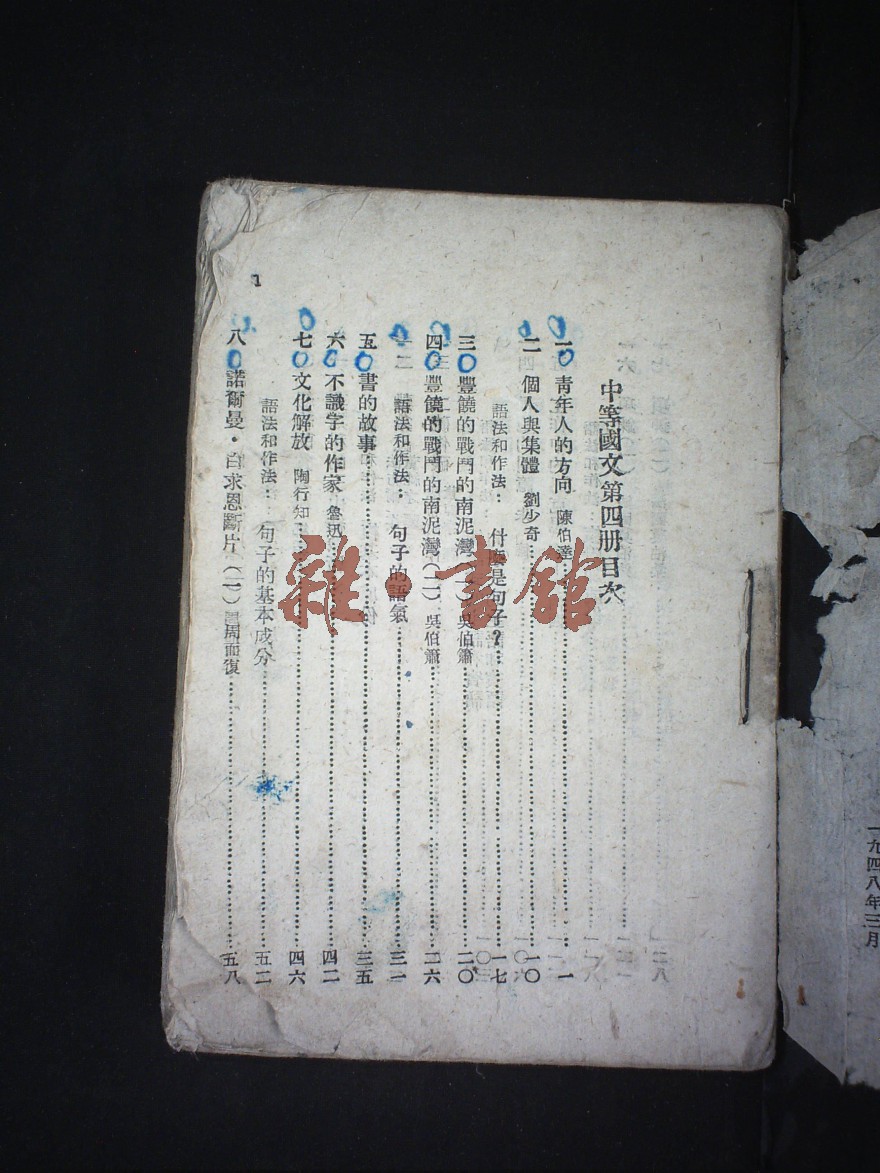 一九四八年三月
中等國文第四册目次
一 青年人的方向 陳伯達 一
二 個人與集體 劉少奇 一〇
語法和作法： 什麼是句子？ 一七
三 豐饒的戰鬥的南泥灣（一） 吳伯簫 二〇
四 豐饒的戰鬥的南泥灣（二） 吳伯簫 二六
語法和作法： 句子的語氣 三一
五 書的故事 三五
六 不識字的作家 魯迅 四二
七 文化解放 陶行知 四六
語法和作法： 句子的基本成分 五二
八 諾爾曼·白求恩斷片（一） 周而復 五八
1
雜·書館